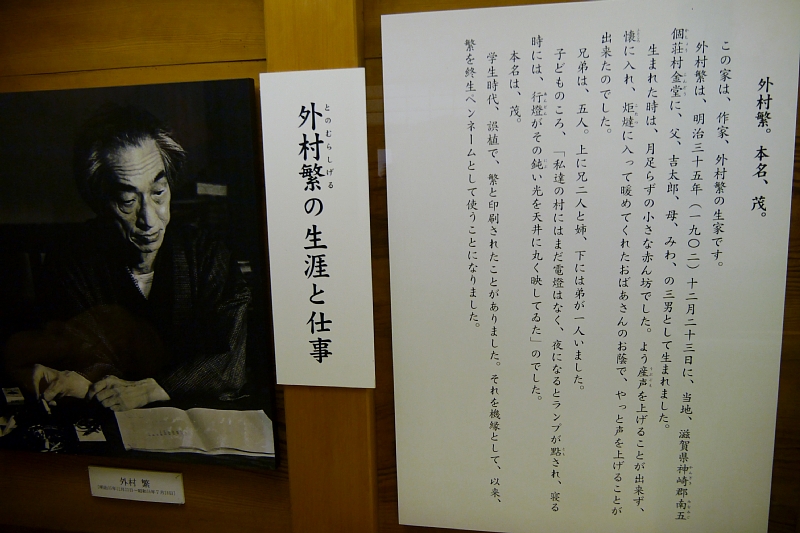 外村繁。本名、茂。
この家は、作家、外村繁の生家です。
外村繁は、明治三十五年（一九〇二）十二月二十三日に、当地、滋賀県神崎郡南五
個荘村金堂に、父、吉太郎、母、みわ、の三男として生まれました。
生まれた時は、月足らずの小さな赤ん坊でした。よう産声を上げることが出来ず、
懐に入れ、炬燵に入って暖めてくれたおばあさんのお蔭で、やっと声を上げることが
出来たのでした。
兄弟は、五人。上に兄二人と姉、下には弟が一人いました。
子どものころ、「私達の村にはまだ電燈はなく、夜になるとランプが點され、寝る
時には、行燈がその鈍い光を天井に丸く映してゐた」のでした。
本名は、茂。
学生時代、誤植で、繁と印刷されたことがありました。それを機縁として、以来、
繁を終生ペンネームとして使うことになりました。
とのむらしげる
外村繁の生涯と仕事
外村 繁